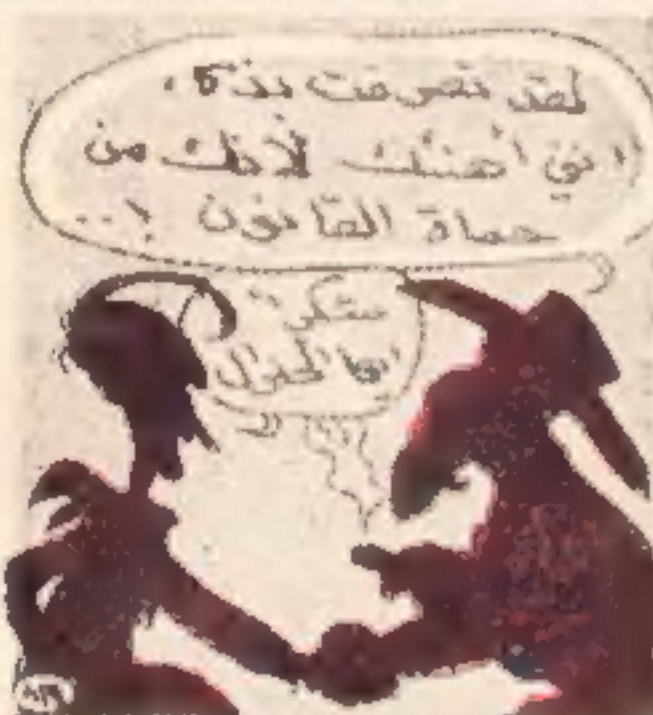 لقد تصرفت بذكاء
اني أهنئك لأنك من
حماة القانون !..
شكرا
ايها الجنرال